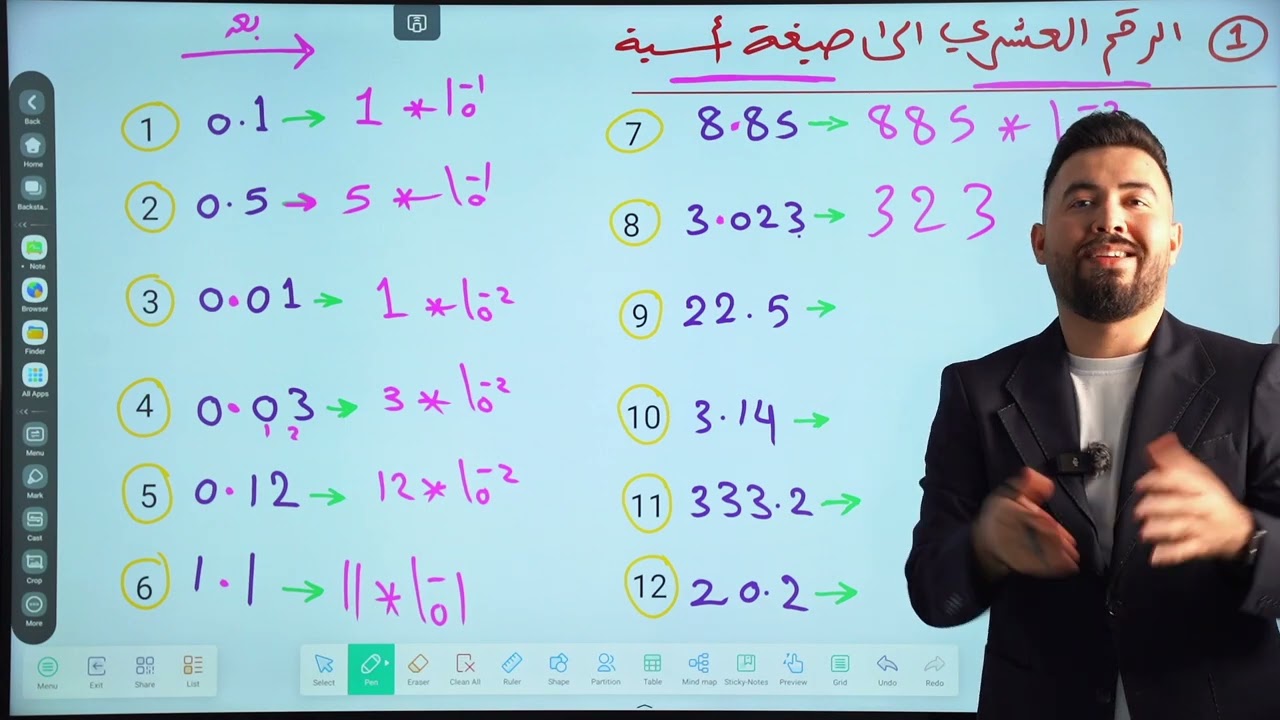 ① الرقم العشري الى صيغة أسية
بعد
1 0.1 → 1 * 10⁻¹
2 0.5 → 5 * 10⁻¹
3 0.01 → 1 * 10⁻²
4 0.03 → 3 * 10⁻²
1 2
5 0.12 → 12 * 10⁻²
6 1.1 → 11 * 10⁻¹
7 8.85 → 885 * 10⁻²
8 3.023 → 323
9 22.5 →
10 3.14 →
11 333.2 →
12 20.2 →
Back
Home
Backsta..
Note
Browser
Finder
All Apps
Menu
Mark
Cast
Crop
More
Menu Exit Share List
Select Pen Eraser Clean All Ruler Shape Partition Table Mind map Sticky-Notes Preview Grid Undo Redo